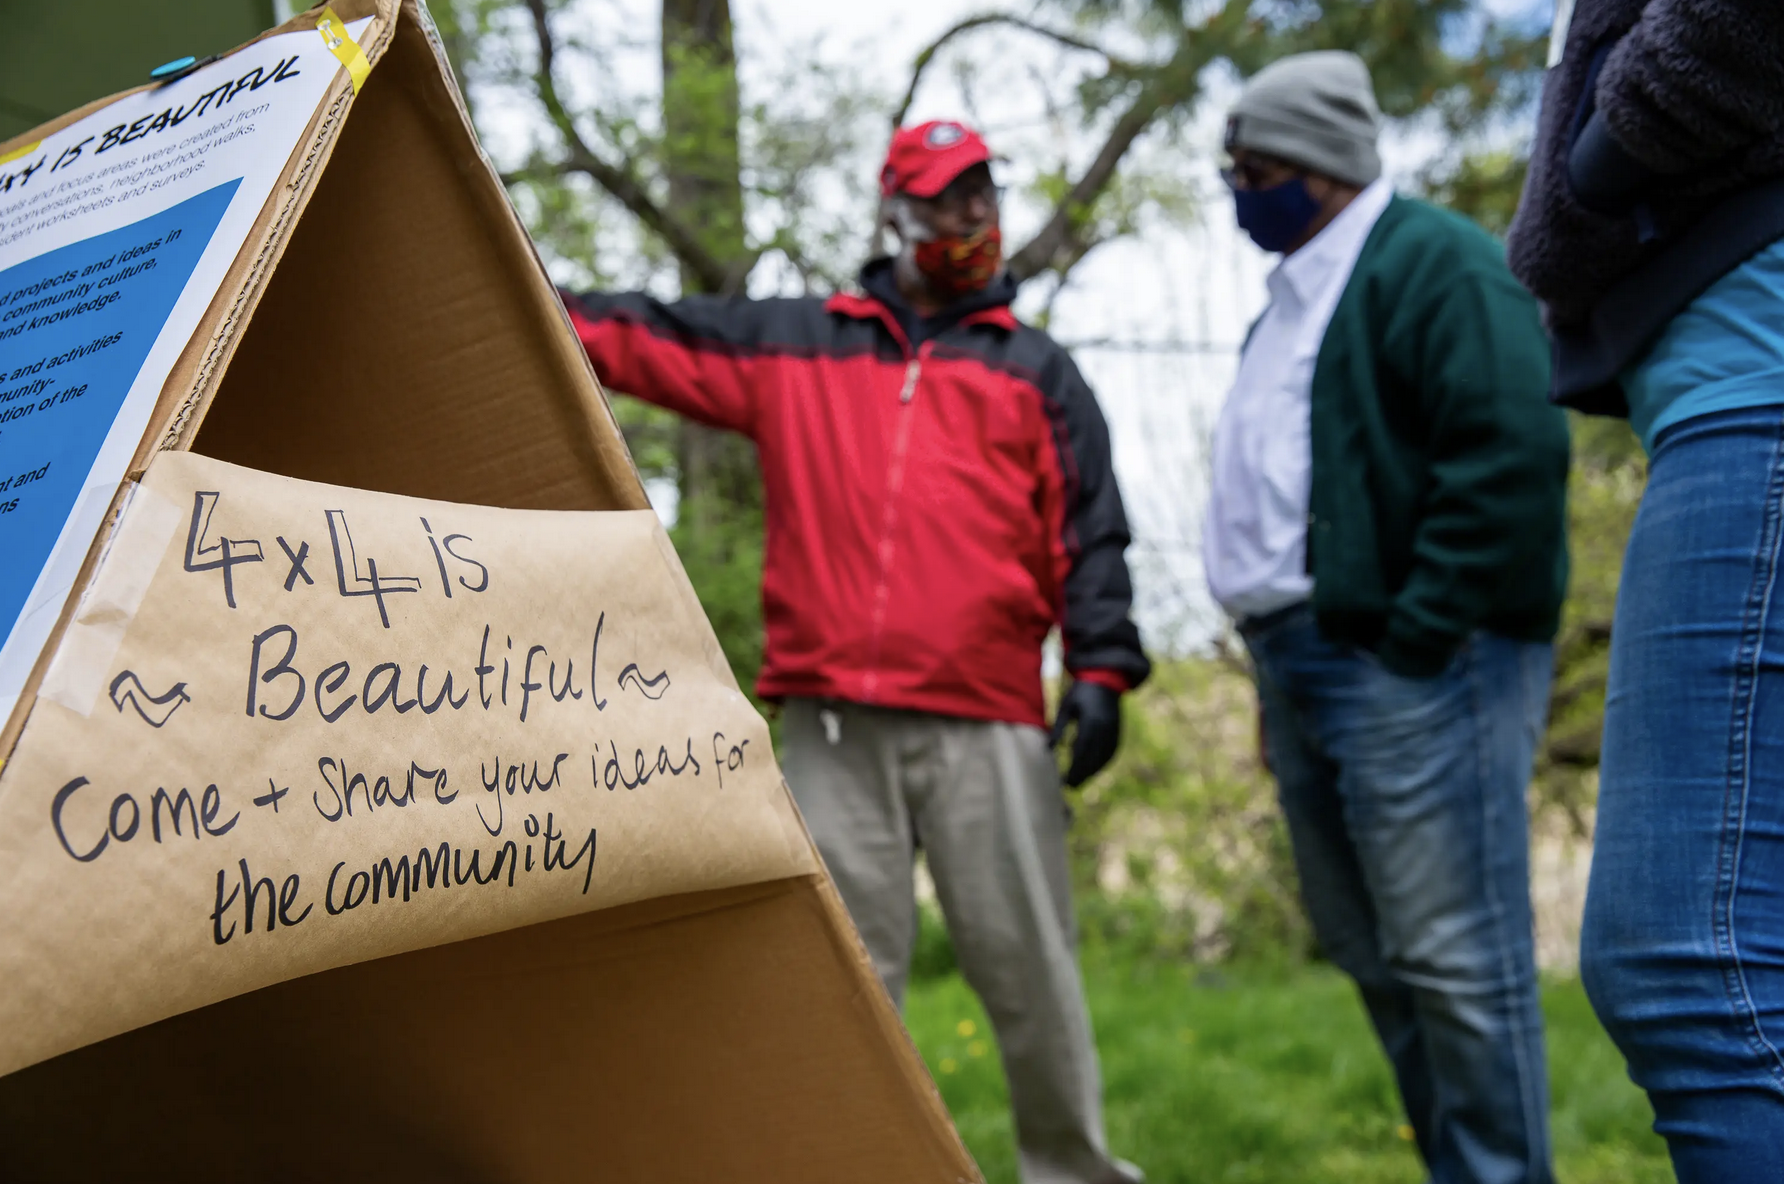 IS BEAUTIFUL
and focus areas were created from
conversations, neighborhood walks,
worksheets and surveys.
projects and ideas in
community culture,
and knowledge.
and activities
of the
and
4x4 is
~ Beautiful ~
Come + Share your ideas for
the community